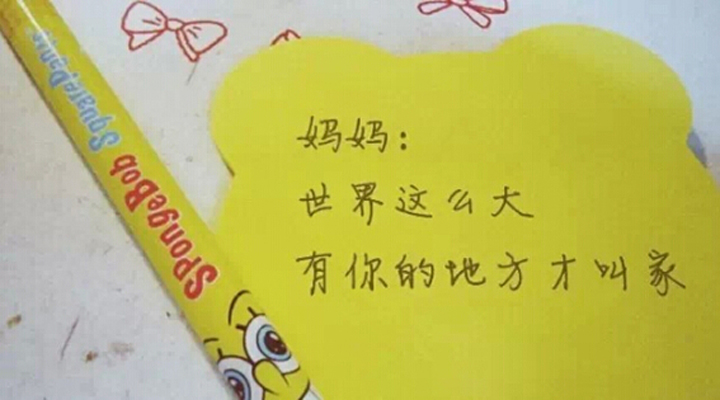 妈妈：
世界这么大
有你的地方才叫家
SPongeBob SquarePants